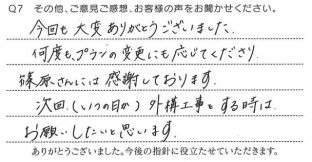 Q7 その他、ご意見ご感想、お客様の声をお聞かせください。
今回も大変ありがとうございました。
何度も、プランの変更にも応じてくださり、
篠原さんには感謝しております。
次回、(いつの日か) 外構工事をする時は、
お願いしたいと思います。
ありがとうございました。今後の指針に役立たせていただきます。